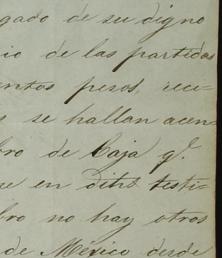 gado de su digno
io de las partidas
entos pesos, rece-
s se hallan acen-
bro de Caja q.
ue en dito testi-
bro no hay otros
de México desde